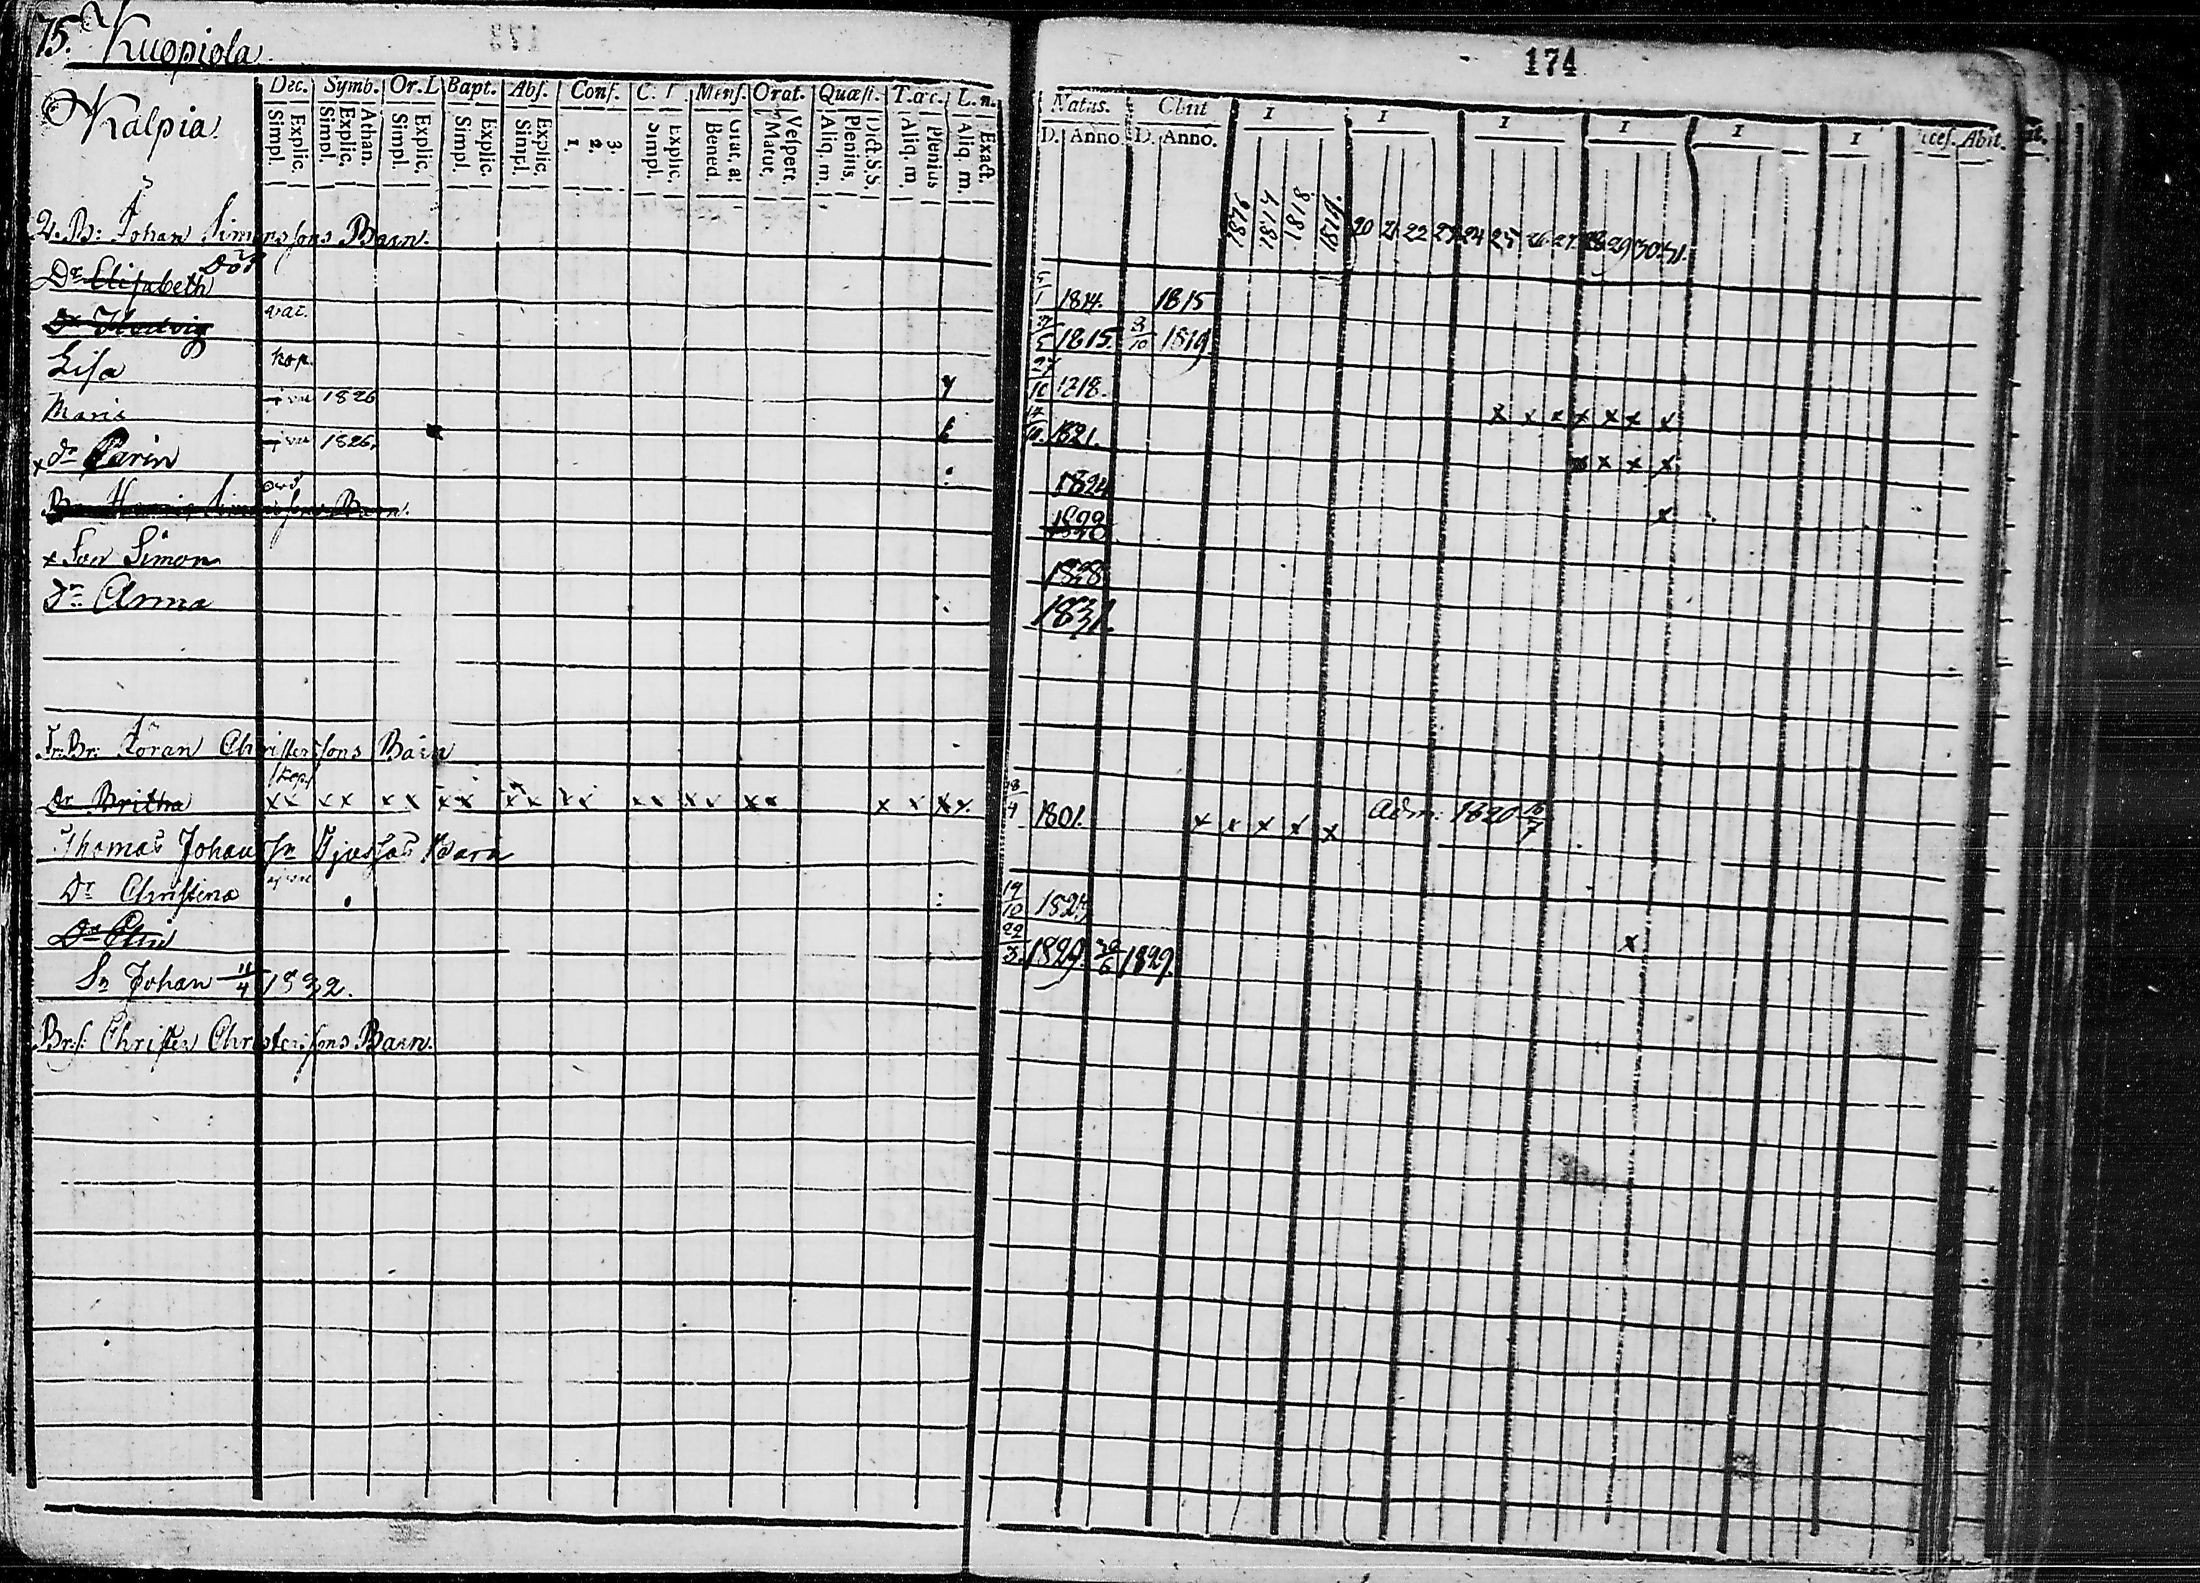 75. Kuopiola
174
Kalpia
Dec. Symb. Or. Bapt. Abs. Conf. C. Mens. Orat. Quæst. T. œc. L. n.
Simpl. Explic. Simpl. Explic. Athan. Simpl. Explic. Simpl. Explic. Simpl. Explic. 1. 2. 3. Simpl. Explic. Bened. Grat. a. Matut. Vespert. Aliq. m. Plenius. Dict. S. S. Aliq. m. Plenius Aliq. m. Exact.
Natus. Obiit I I I I I I Abit.
D. Anno D. Anno.
1816 1817 1818 1819. 20 21 22 23 24 25 26 27 28 29 30 31.
Br: Johan Simonssons Barn.
Dr Elisabeth Död 1814. 1815
Dr Hedvig vac. 5 1815. 3/10 1819.
Lisa kop. 27/10 1218.
Maria 1826 1821. x x x x x x x
x dr Carin 1826. 1824 x x x x
Simonssons Barn. x
x Son Simon 1828
Dr Anna 1831.
Br: Jöran Christerssons Barn
Dr Britha kop. x x x x x x x x x x x x x x x x x x x x x x 4 1801. x x x x x Adm: 1820 /7
Thomas Johansn Barn
Dr Christina 19/10 182
Dr Elin 22 1829. 6 1829. x
Sn Johan 11/4 1832.
Br.s: Christer Christerssons Barn.